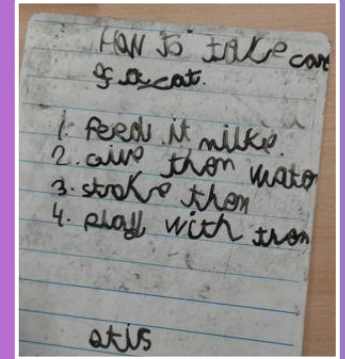 How to take care
of a cat.
1. feed it milke.
2. give them water
3. stroke them
4. play with them
otis